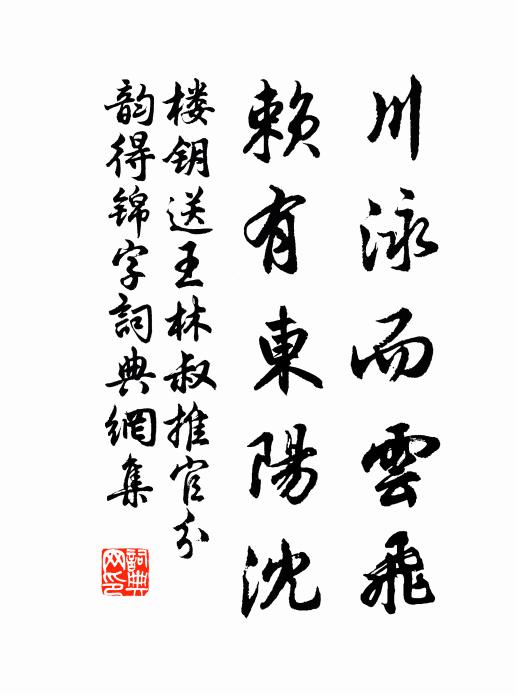 川泳而雲飛
賴有東陽沈
楼钥送王林叔推官分
韵得锦字詞典網集
詞典網印